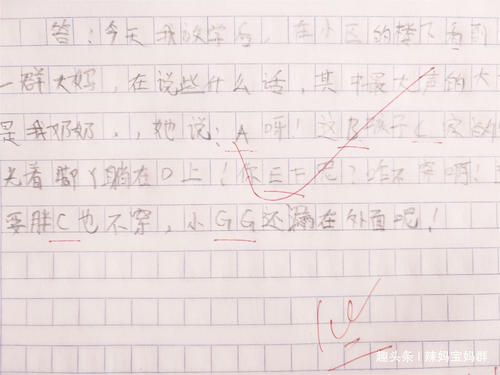 答:今天我放学后,在小区的楼下看到
一群大妈,在说些什么话,其中最大声的大
是我奶奶.,她说:A呀!这B孩子L
光着脚丫躺在D上!你EF呢?咋不穿啊!
要胜C也不穿,小GG还漏在外面呢!
趣头条 | 辣妈宝妈群